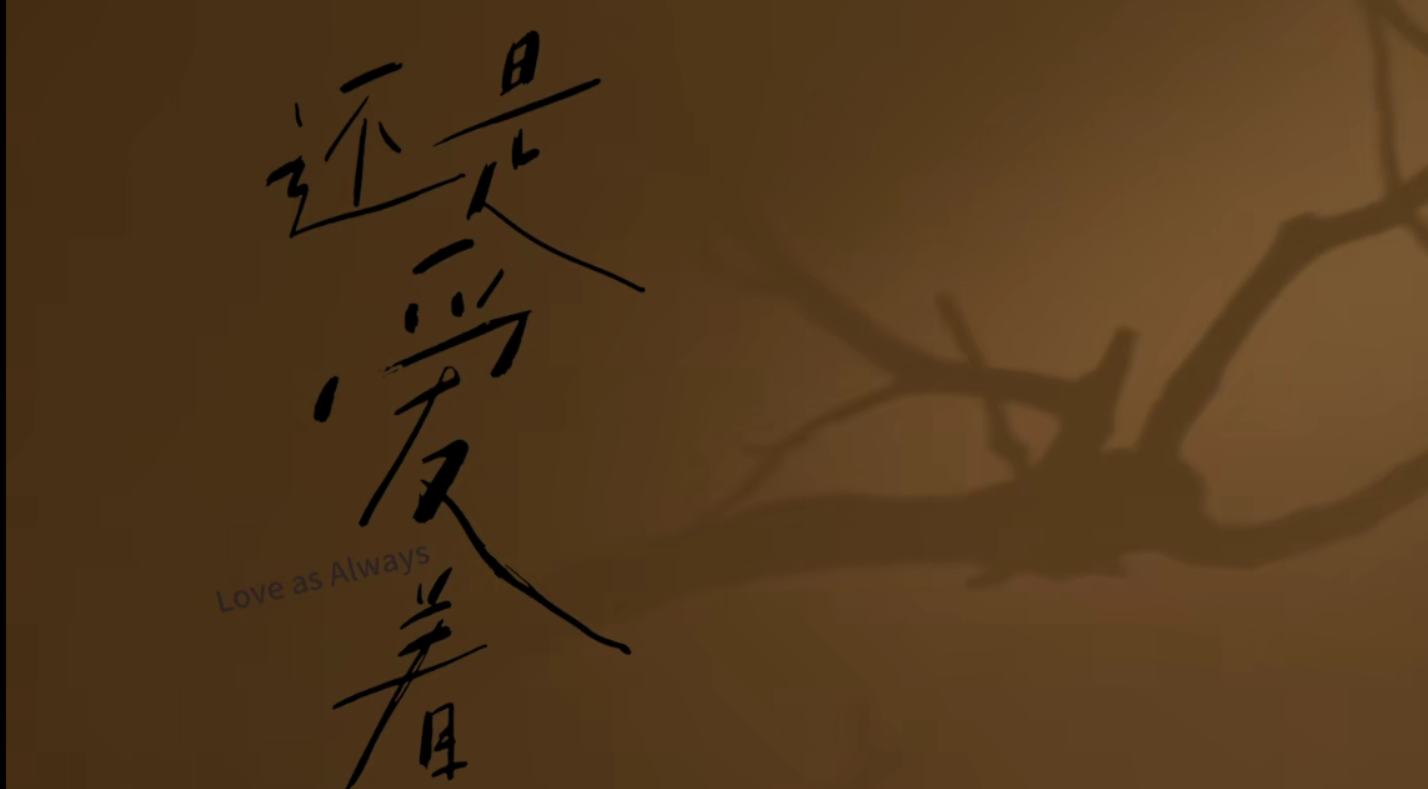 还是
爱
着
Love as Always